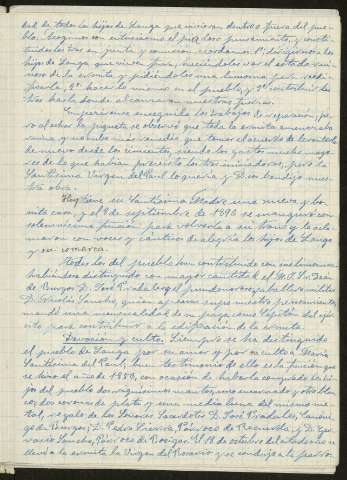 dad de todos los hijos de Langa que vivieran dentro y fuera del pue-
blo. Acogimos con entusiasmo el piadoso pensamiento, y consti-
tuidos los tres en junta y comisión, acordamos 1º dirigirnos a los
hijos de Langa que viven fuera, haciéndoles ver el estado rui-
noso de la ermita y pidiéndoles una limosna para reedi-
ficarla, 2º hacer lo mismo en el pueblo, y 3º contribuir los
tres hasta donde alcanzaran nuestras fuerzas.
Empezáronse enseguida los trabajos de reparación, pe-
ro al echar la se observó que toda la ermita amenazaba
ruina, y no hubo más remedio que tomar el acuerdo de levantarla
de nuevo desde los cimientos, siendo los gastos mucho mayo-
res de lo que habían previsto los tres iniciadores, pero la
Santísima Virgen del Paul lo quería y Dios bendijo nues-
tra obra.
Hoy tiene su Santísima Madre una nueva y bo-
nita casa, y el 8 de septiembre de 1898 se inauguró con
solemnísima función para volverla a su trono y la acla-
maron con voces y cánticos de alegría los hijos de Langa
y su comarca.
Todos los del pueblo han contribuido con sus limosnas
habiéndose distinguido con mayor cantidad el M. I. Sr. Deán
de Burgos D. José Pradales y el pundonoroso y bizarro militar
D. Nicolás Sancho, quien apenas supo nuestro pensamiento,
mandó una mensualidad de su paga como Capitán del ejér-
cito para contribuir a la edificación de la ermita.
Devoción y culto. Siempre se ha distinguido
el pueblo de Langa por su amor y por su culto a María
Santísima del Paul; buen testimonio de ello es la función que
se hizo el año de 1880, con ocasión de haberla comprado los hi-
jos del pueblo dos riquísimos mantos, uno encarnado y otro blan-
co, dos coronas de plata y una media luna del mismo me-
tal, regalo de los Señores Sacerdotes D. José Pradales, Canóni-
go de Burgos; D. Pedro Sierra, Párroco de Recuerda, y D. Ger-
vasio Sancho, Párroco de Bocigas. El 18 de octubre del citado año se
llevó a la ermita la Virgen del Rosario y se condujo a la parro-